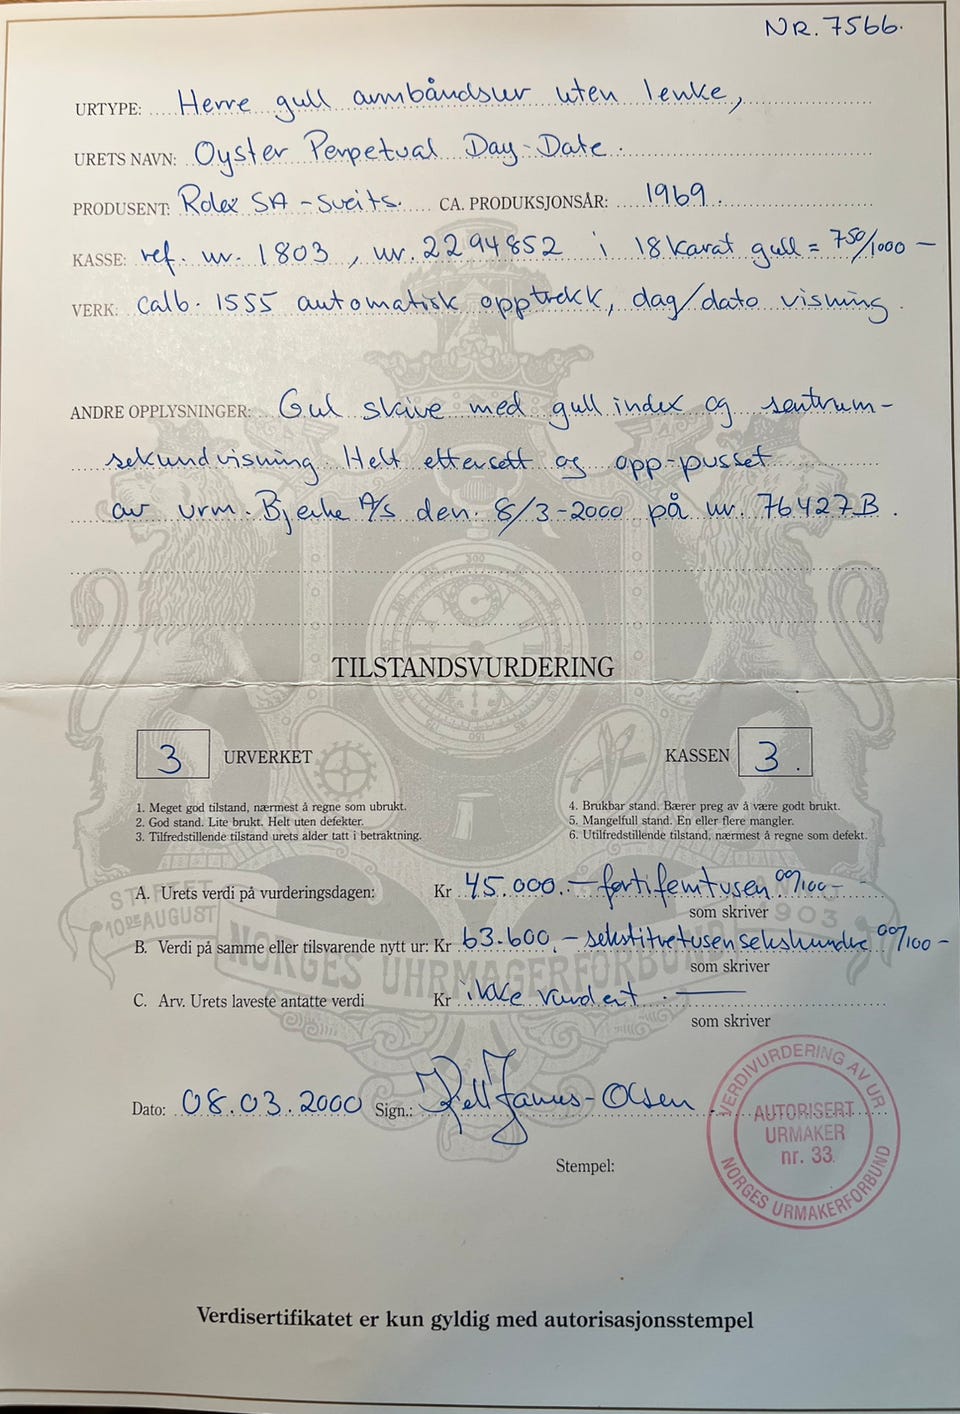 NR. 7566.
URTYPE: Herre gull armbåndsur uten lenke,
URETS NAVN: Oyster Perpetual Day-Date.
PRODUSENT: Rolex SA - Sveits. CA. PRODUKSJONSÅR: 1969.
KASSE: ref. nr. 1803, nr. 2294852 i 18 karat gull = 750/1000 -
VERK: calb. 1555 automatisk opptrekk, dag/dato visning.
ANDRE OPPLYSNINGER: Gul skive med gull index og sentrum-
sekundvisning. Helt ettersett og opp-pusset
av urm. Bjerke A/S den. 8/3-2000 på nr. 76427B.
TILSTANDSVURDERING
3 URVERKET KASSEN 3.
1. Meget god tilstand, nærmest å regne som ubrukt.
2. God stand. Lite brukt. Helt uten defekter.
3. Tilfredstillende tilstand urets alder tatt i betraktning.
4. Brukbar stand. Bærer preg av å være godt brukt.
5. Mangelfull stand. En eller flere mangler.
6. Utilfredstillende tilstand, nærmest å regne som defekt.
A. Urets verdi på vurderingsdagen: Kr 45.000.- førtifemtusen 00/100-
som skriver
B. Verdi på samme eller tilsvarende nytt ur: Kr 63.600.- sekstitretusensekshundre 00/100-
som skriver
C. Arv. Urets laveste antatte verdi Kr ikke vurdert.
som skriver
STIFTET 10DE AUGUST 1903
NORGES UHRMAGERFORBUND
Dato: 08.03.2000 Sign.: Janus-Olsen
Stempel:
VERDIVURDERING AV UR
AUTORISERT
URMAKER
nr. 33
NORGES URMAKERFORBUND
Verdisertifikatet er kun gyldig med autorisasjonsstempel